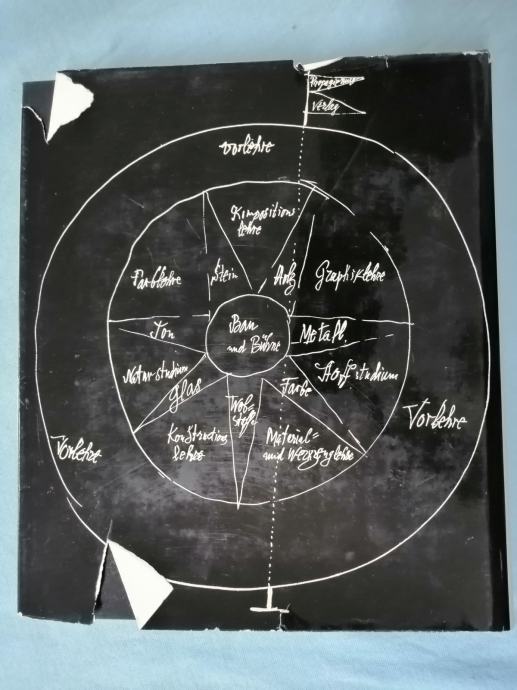 Propagierung
Verlag
Vorlehre
Kompositions
lehre
Farblehre
Stein
Holz
Graphiklehre
Bau
und Bühne
Ton
Metall.
Naturstudium
Stoffstudium
Glas
Web-
stoffe
Farbe
Konstruktions
lehre
Material=
und Werkzeuglehre
Vorlehre
Vorlehre